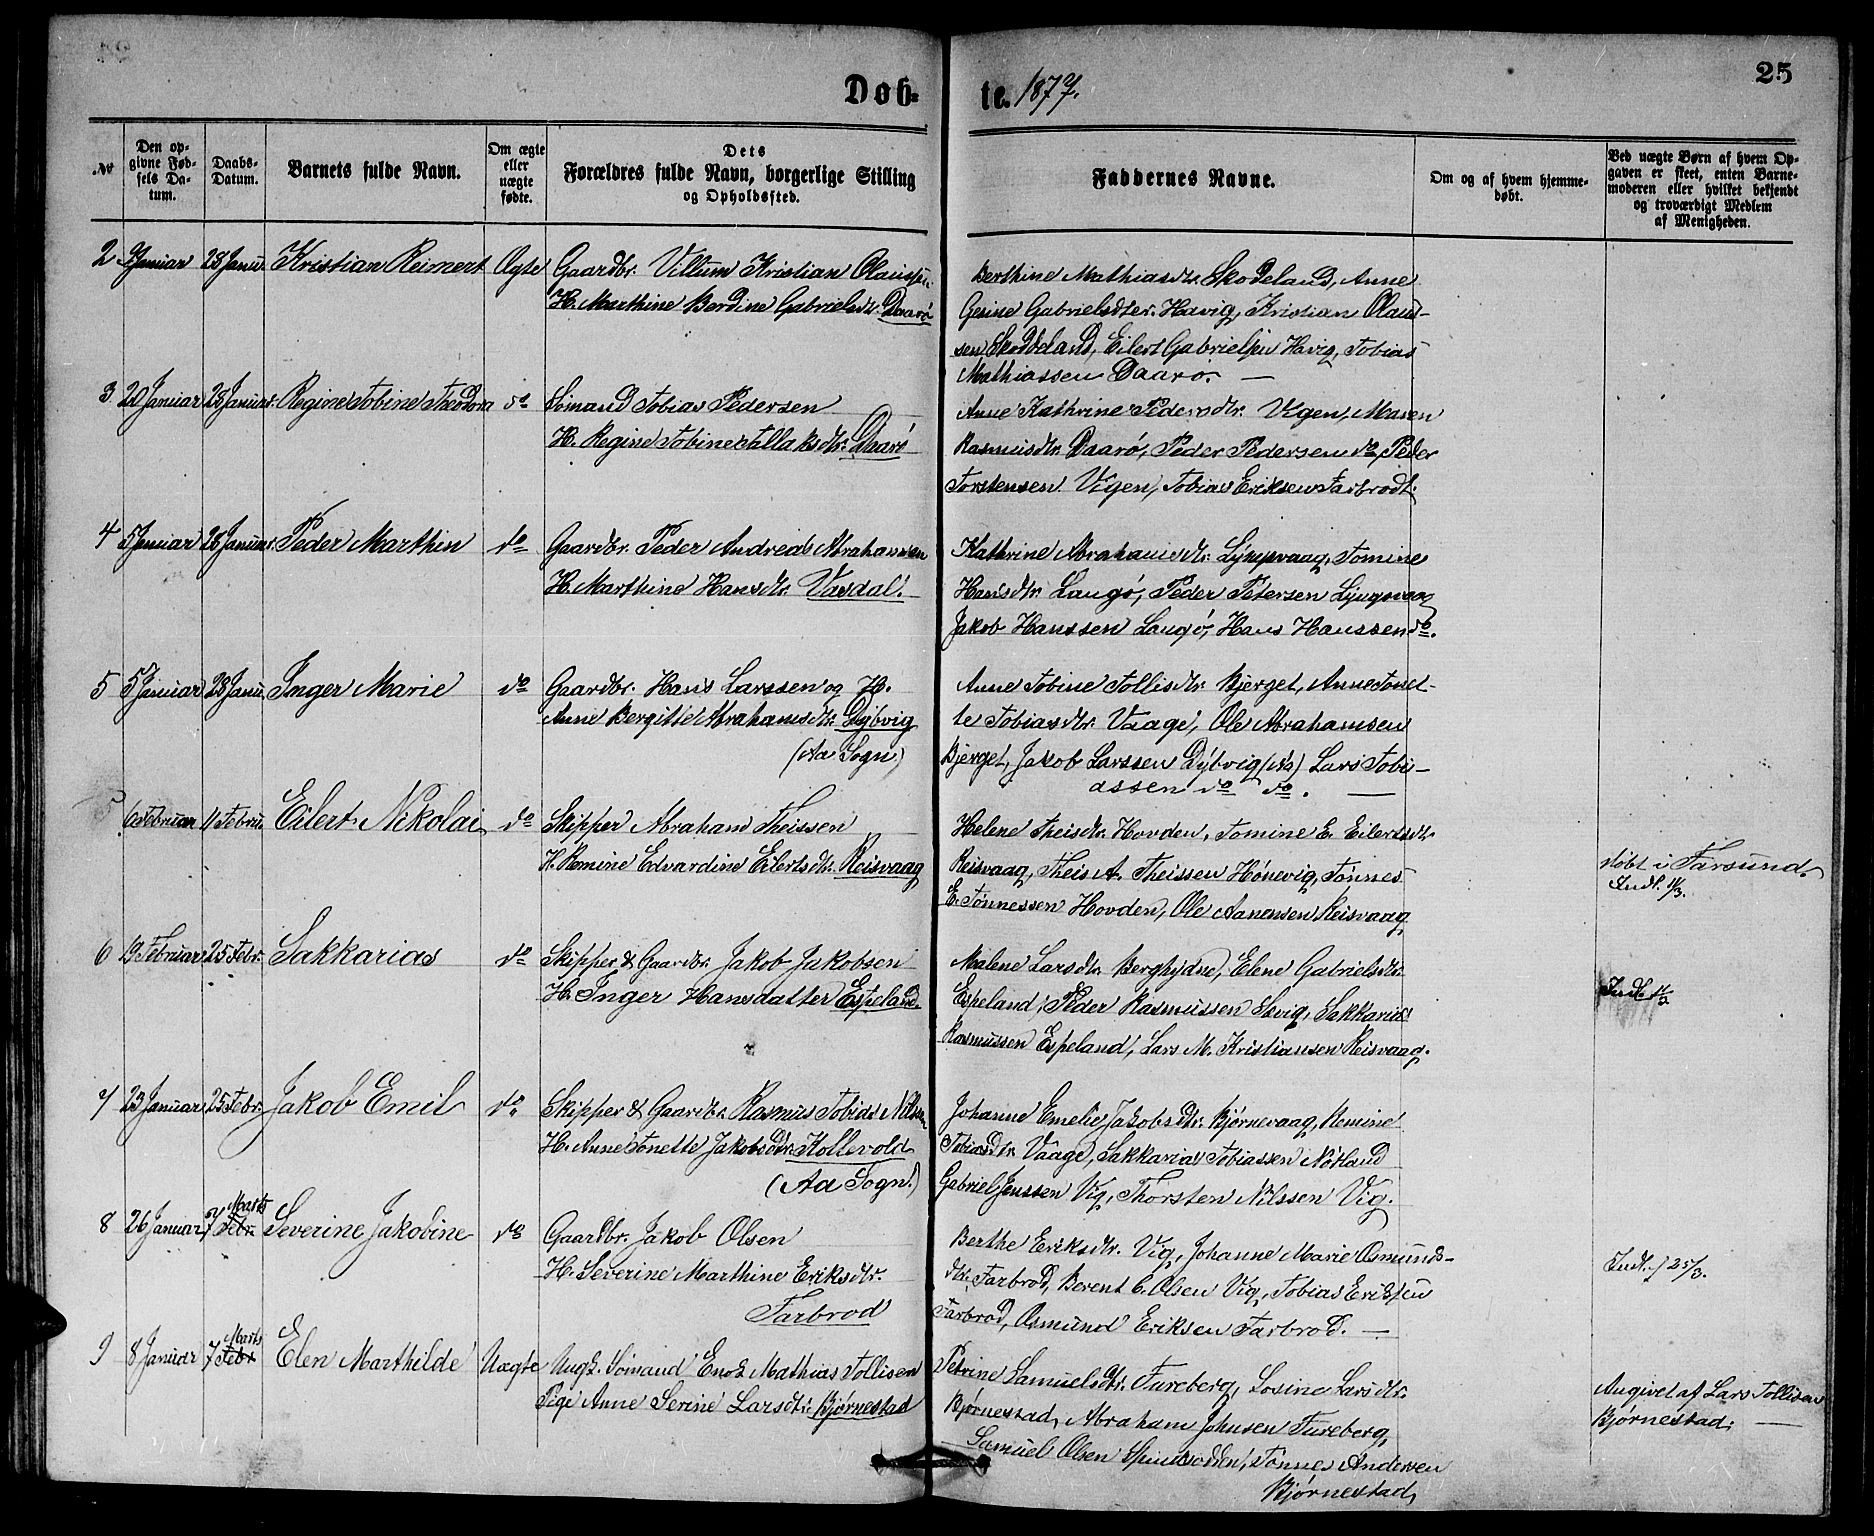 Døb-
te. 1877.
25
No
Den op-
givne Fød-
sels Da-
tum.
Daabs-
Datum.
Barnets fulde Navn.
Om ægte
eller
uægte
fødte.
Dets
Forældres fulde Navn, borgerlige Stilling
og Opholdssted.
Faddernes Navne.
Om og af hvem hjemme-
døbt.
Ved uægte Børn af hvem Op-
gaven er skeet, enten Barne-
moderen eller hvilket bekjendt
og troværdigt Medlem
af Menigheden.
2 Januar 28 Janu. Kristian Reinert Ægte Gaardbr. Villum Kristian Olaussen
H. Marthine Berdine Gabrielsdtr. Daarø
Berthine Mathiasdtr. Skodeland, Anne
Gesine Gabrielsdter. Havig, Kristian Olaus-
sen Skoddeland, Eilert Gabrielsen Havig, Tobias
Mathiassen Daarø. —
3 20 Januar 28 Januar. Regine Tobine Theodora do Sømand Tobias Pedersen
H. Regine Tobine Tallaksdtr. Daarø
Anne Kathrine Pedersdtr. Vigen, Maren
Rasmusdtr. Daarø, Peder Pedersen do, Peder
Torstensen Vigen, Tobias Eriksen Farbrodt.
4 5 Januar 28 Januar. Peder Marthin do Gaardbr. Peder Andreas Abrahamsen
H. Marthine Hansdtr. Vasdal.
Kathrine Abrahamsdtr. Lyngsvaag, Tomine
Hansdtr. Langø, Peder Petersen Lyngsvaag
Jakob Hanssen Langø, Hans Hanssen do.
5 5 Januar 28 Janu. Inger Marie do Gaardbr. Hans Larssen og H.
Anne Bergitte Abrahamsdtr. Dybvig
(Aa Sogn.)
Anne Tobine Tollisdtr. Bjerget, Anne Tonet-
te Tobiasdtr. Vaage, Ole Abrahamsen
Bjerget, Jakob Larssen Dybvig (Aa) Lars Tobi-
assen do do. —
5 6 Februar 11 Febru. Eilert Nikolai do Skipper Abraham Theissen
H. Romine Edvardine Eilertsdtr. Reisvaag
Helene Theisdtr. Hovden, Tomine E. Eilertsdtr.
Reisvaag, Theis A. Theissen Hønevig, Tønnes
E. Tønnessen Hovden, Ole Aanensen Reisvaag
døbt i Farsund.
Indl. 11/3.
6 19 Februar 25 Febr. Sakkarias do Skipper & Gaardbr. Jakob Jakobsen
H. Inger Hansdatter Espeland
Malene Larsdtr. Berghydne, Elene Gabrielsdtr.
Espeland, Peder Rasmussen Sævig, Sakkarias
Rasmussen Espeland, Lars M. Kristiansen Reisvaag.
7 23 Januar 25 Febr. Jakob Emil do Skipper & Gaardbr. Rasmus Tobias Nilsen
H. Anne Tonette Jakobsdtr. Kollevold
(Aa Sogn.)
Johanne Emelie Jakobsdtr. Bjørnevaag, Romine
Tobiasdtr. Vaage, Sakkarias Tobiassen Nøtland
Gabriel Jenssen Vig, Thorsten Nilssen Vig.
8 26 Januar 7 Febr. Marts Severine Jakobine do Gaardbr. Jakob Olsen
H. Severine Marthine Eriksdtr.
Farbrod
Berthe Eriksdtr. Vig, Johanne Marie Osmunds-
dtr. Farbrod, Berent C. Olsen Vig, Tobias Eriksen
Farbrod, Osmund Eriksen Farbrod. —
Indl. 25/3.
9 8 Januar 7 Febr Marts Elen Marthilde Uægte Ungk. Sømand Enok Mathias Tollisen
Pige Anne Serine Larsdtr. Bjørnestad
Petrine Samuelsdtr. Fureberg, Losine Larsdtr.
Bjørnestad, Abraham Johnsen Fureberg,
Samuel Olsen Spindsodden, Tønnes Andersen
Bjørnestad,
Angivet af Lars Tollisen
Bjørnestad. —